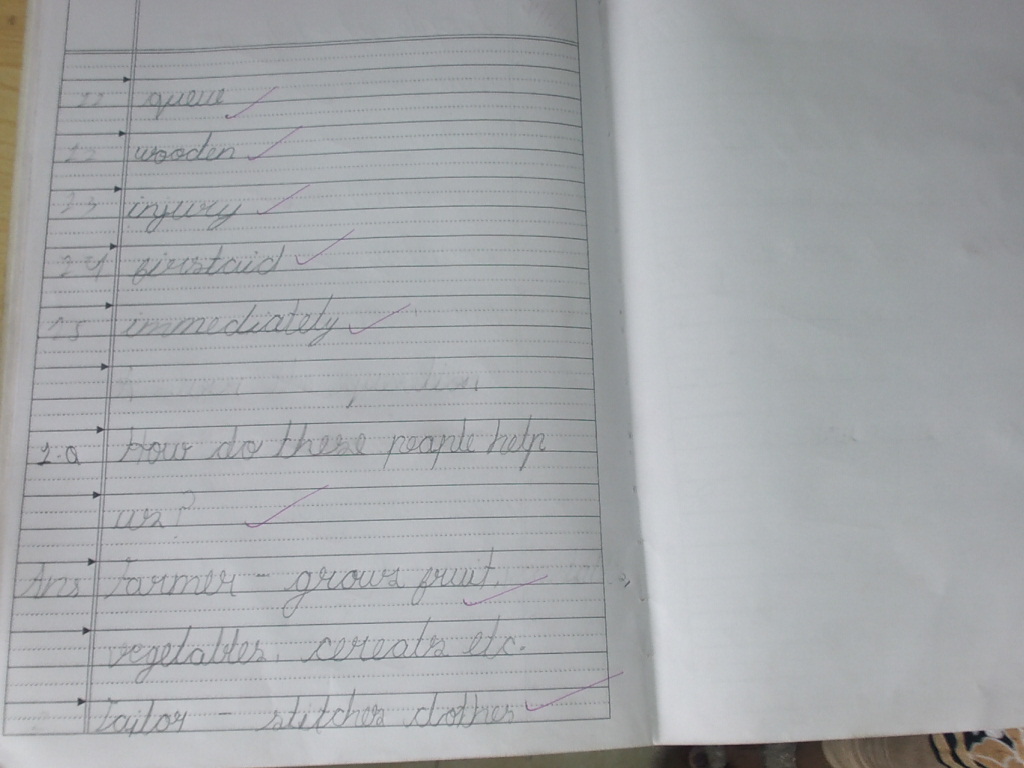 queue
wooden
injury
24 firstaid
25 immediately
How do these people help
us?
Ans Farmer - grows fruit,
vegetables, cereals etc.
Tailor - stitches clothes